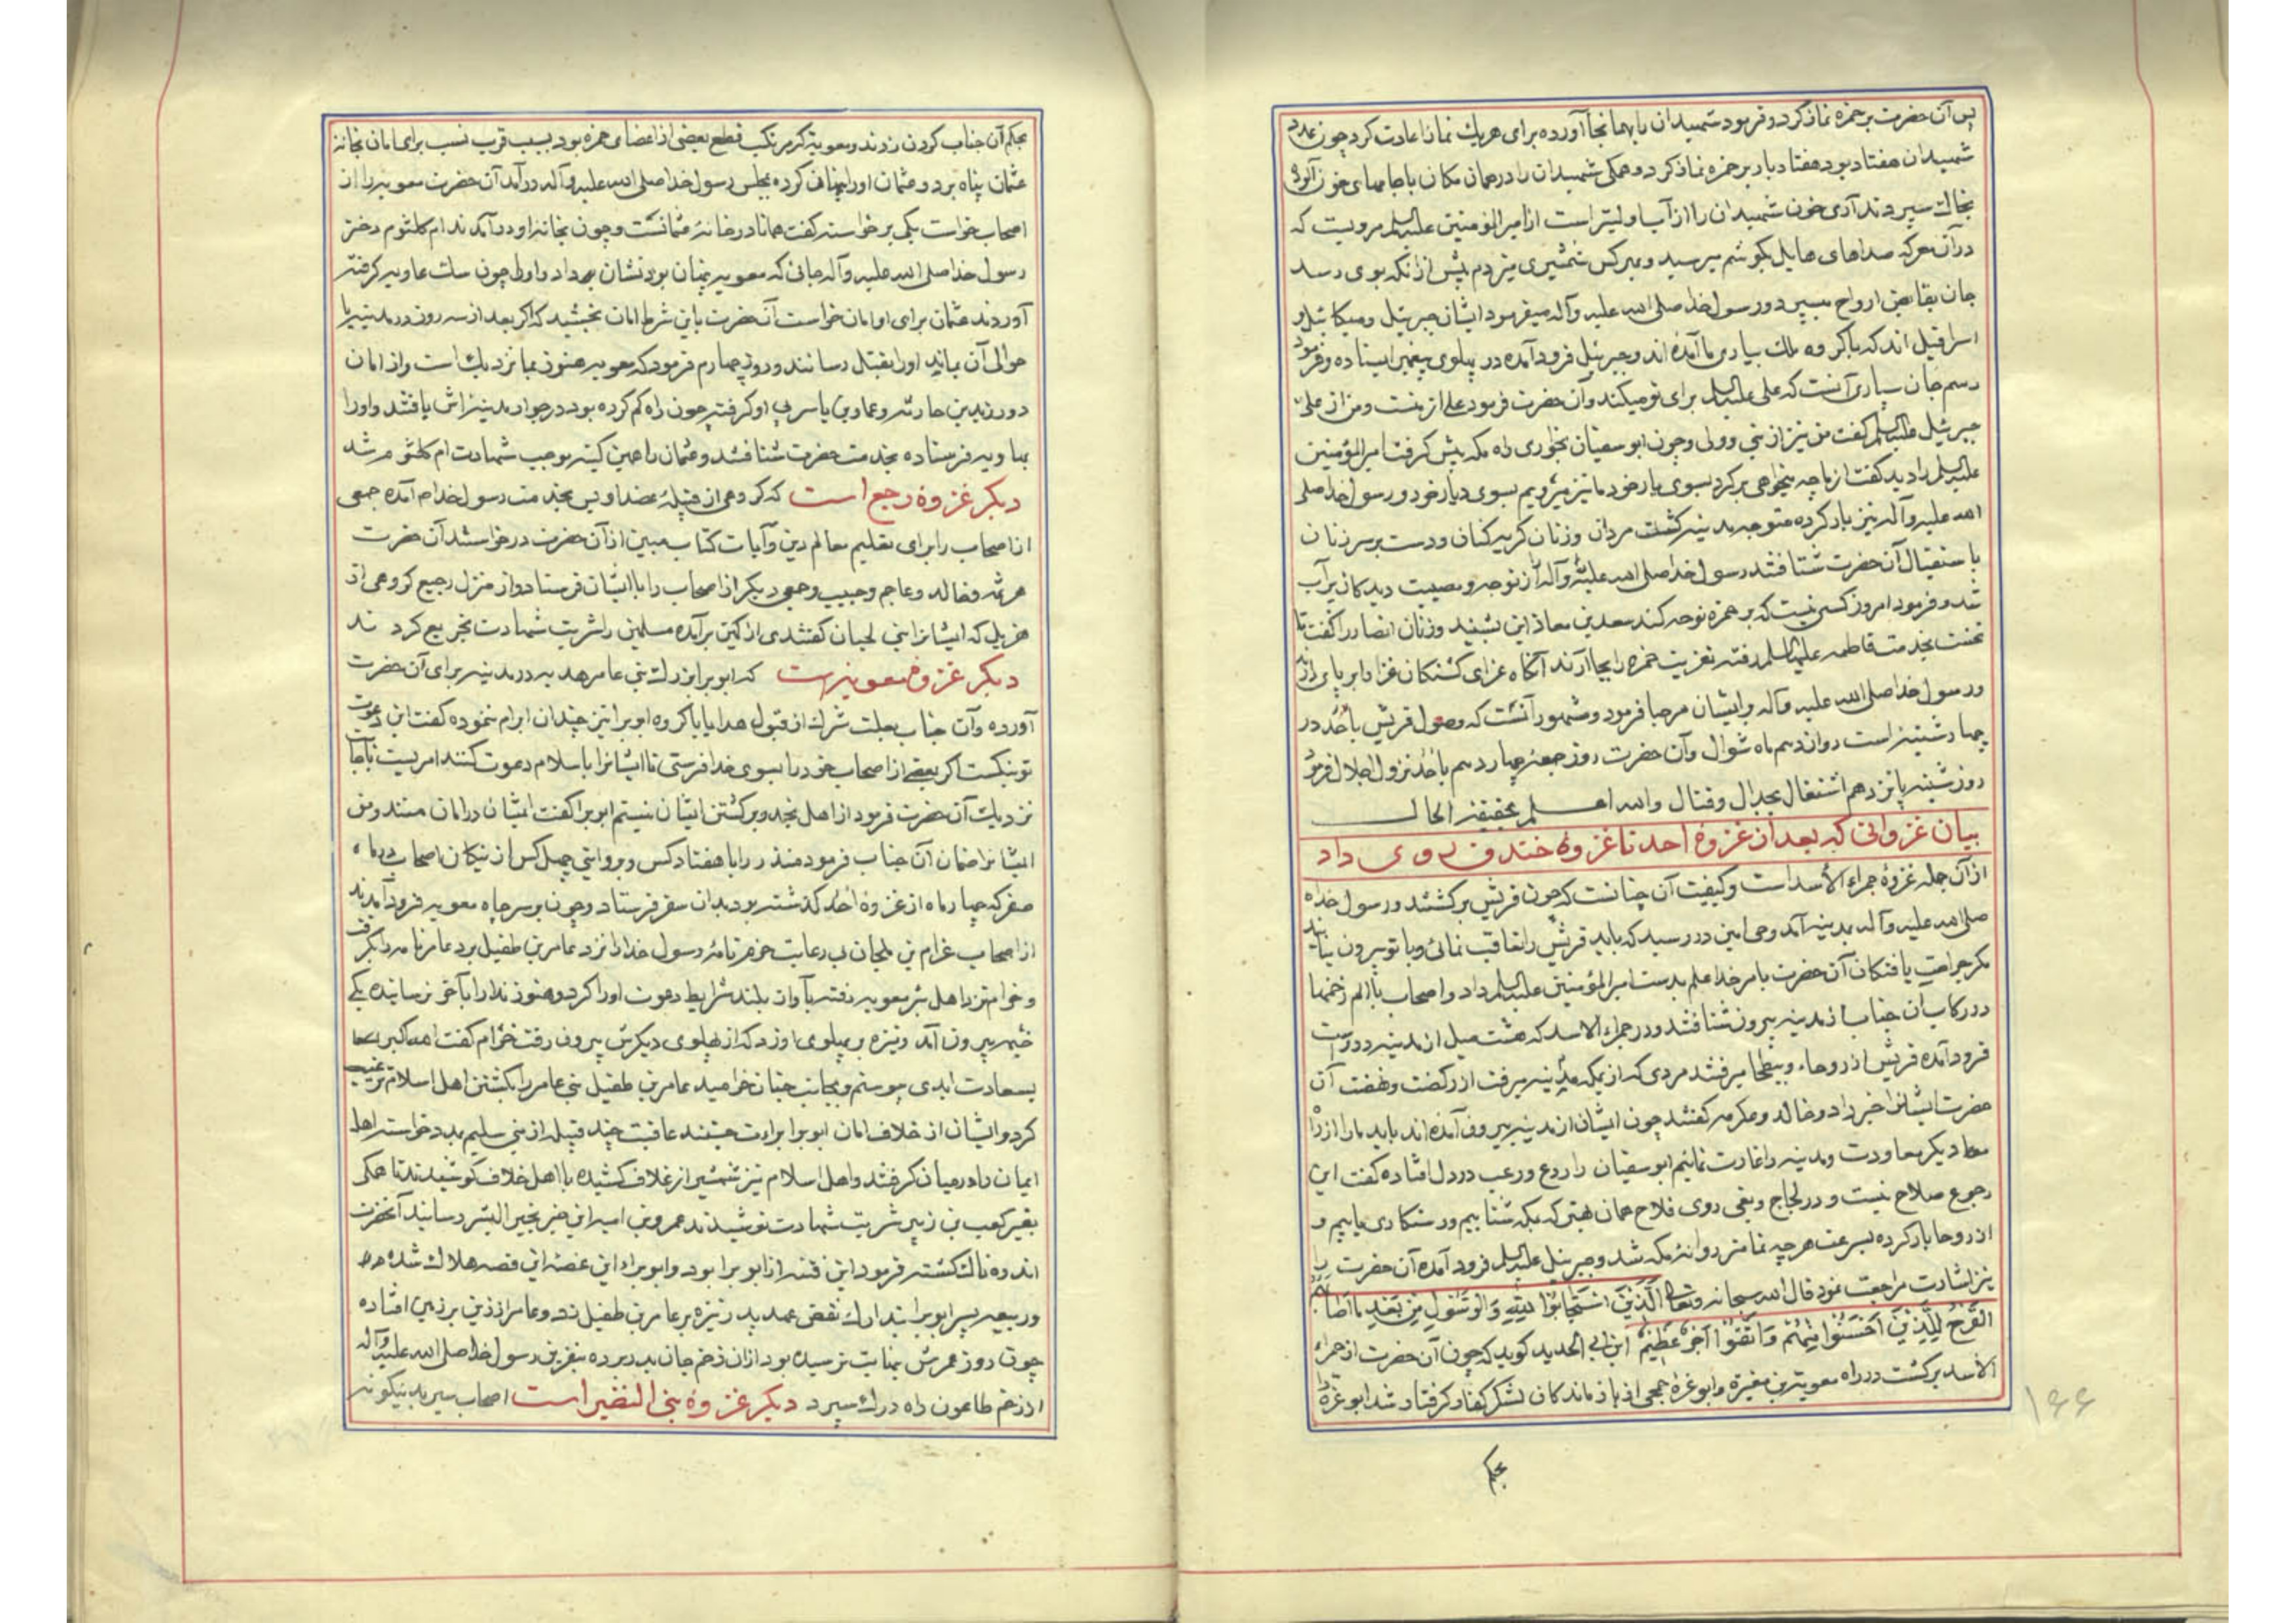 پس آن حضرت بر حمزه نماز کرد و فرمود شهیدان را بهمانجا آورده برای هر یك نماز اعادت کرد چون عدد
شهیدان هفتاد بود هفتاد بار بر حمزه نماز کرد و همکی شهیدان را در همان مکان با جامهای خون آلود
بخاك سپردند آری خون شهیدان را از آب اولیتر است از امیر المومنین علیه السلم مرویست که
در آن معرکه صداهای هایل بکوشم میرسید و بهر کس شمشیری میزدم پیش از آنکه بوی رسد
جان بقابض ارواح میسپرد و رسول خدا صلی الله علیه وآله میفرمود ایشان جبرئیل و میکائیل و
اسرافیل اند که با کروه ملك بیاری ما آمده اند و جبرئیل فرود آمده در پهلوی پیغمبر ایستاده و فرمود
رسم جان سپاری آنست که علی علیه السلم برای تو میکند و آن حضرت فرمود علی از منست و من از علی
جبرئیل علیه السلم کفت من نیز از نبی و ولی و چون ابو سفیان بخواری راه مکه پیش کرفت امیر المؤمنین
علیه السلم را دید کفت از ما چه میخواهی بر کرد بسوی یار خود ما نیز میرویم بسوی دیار خود و رسول خدا صلی
الله علیه وآله نیز بار کرده متوجه مدینه کشت مردان و زنان کریه کنان و دست بر سر زنان
باستقبال آن حضرت شتافتند رسول خدا صلی الله علیه وآله از نوحه و مصیبت دیدکان پر آب
شد و فرمود امروز کسی نیست که بر حمزه نوحه کند سعد بن معاذ این بشنید و زنان انصار را کفت تا
نخست بخدمت فاطمه علیها السلم رفته تعزیت حمزه را بجا آرند آنکاه عزای کشتکان خود را بر پای دارند
و رسول خدا صلی الله علیه وآله بر ایشان مرحبا فرمود و مشهور آنست که وصول قریش باحد در
چهارشنبه است دوازدهم ماه شوال و آن حضرت روز جمعه چهاردهم باحد نزول اجلال فرمود
روز شنبه پانزدهم اشتغال بجدال و قتال والله اعلم بحقیقة الحال
بیان غزواتی که بعد از غزوهٔ احد تا غزوهٔ خندق روی داد
از آن جمله غزوهٔ حمراء الاسد است و کیفیت آن چنانست که چون قریش برکشتند و رسول خدا
صلی الله علیه وآله بمدینه آمد وحی امین در رسید که باید قریش را تعاقب نمائی و با تو بیرون نیایند
مکر جراحت یافتکان آن حضرت بامر خدا علم بدست امیر المؤمنین علیه السلم داد و اصحاب با الم زخمها
در رکاب آن جناب از مدینه بیرون شتافتند و در حمراء الاسد که هشت میل از مدینه دور است
فرود آمده قریش از روحاء و بطحا میرفتند مردی که از مکه بمدینه میرفت از رکضت و نهضت آن
حضرت ایشانرا خبر داد و خالد و عکرمه کفتند چون ایشان از مدینه بیرون آمده اند باید ما را از راه
دیکر معاودت و مدینه را غارت نمائیم ابو سفیان را روع و رعب در دل افتاده کفت این
رجوع صلاح نیست و در لجاج و بغی روی فلاح همان بهتر که بمکه شتابیم و رستکاری یابیم و
از روحا بار کرده بسرعت هر چه تمامتر روانهٔ مکه شد و جبرئیل علیه السلم فرود آمده آن حضرت را
نیز اشارت مراجعت نمود قال الله سبحانه وتعالی اَلَّذینَ اسْتَجابُوا لِلّهِ وَالرَّسُولِ مِنْ بَعْدِ ما اَصابَهُمُ
الْقَرْحُ لِلَّذینَ اَحْسَنُوا مِنْهُمْ وَاتَّقَوْا اَجْرٌ عَظیمٌ ابن ابی الحدید کوید که چون آن حضرت از حمراء
الاسد برکشت در راه معویة بن مغیره و ابو غزه جمحی از باز ماندکان لشکر کفار کرفتار شد ابو غزه را
بحکم
۱۶۶
بحکم آن جناب کردن زدند و معویه که مرتکب قطع بعضی از اعضای حمزه بود بسبب قرب نسب برای امان بخانه
عثمان پناه برد و عثمان او را پنهان کرده بمجلس رسول خدا صلی الله علیه وآله در آمد آن حضرت معویه را از
اصحاب خواست یکی برخواسته کفت همانا در خانهٔ عثمانست و چون بخانه او در آمدند ام کلثوم دختر
رسول خدا صلی الله علیه وآله جائی که معویه پنهان بود نشان بداد و او را چون سك عاویه کرفته
آوردند عثمان برای او امان خواست آنحضرت باین شرط امان بخشید که اکر بعد از سه روز در مدینه یا
حوالی آن بماند او را بقتل رسانند و روز چهارم فرمود که معویه هنوز بما نزدیك است و از امان
دور زید بن حارثه و عمار بن یاسر پی او کرفته چون راه کم کرده بود در جوار مدینه اش یافتند و او را
بهاویه فرستاده بخدمت حضرت شتافتند و عثمان را همین کینه موجب شهادت ام کلثوم شد
دیکر غزوهٔ رجیع است که کروهی از قبیلهٔ عضل و بس بخدمت رسول خدا آمده جمعی
از اصحاب را برای تعلیم معالم دین و آیات کتاب مبین از آن حضرت درخواستند آن حضرت
مرثد و خالد و عاصم و حبیب و جمعی دیکر از اصحاب را با ایشان فرستاد و از منزل رجیع کروهی از
هذیل که ایشانرا بنی لحیان کفتندی از کمین برآمده مسلمین را شربت شهادت تجریع کردند
دیکر غزوهٔ معونه است که ابو براء بزرك بنی عامر هدیه در مدینه برای آن حضرت
آورده و آن جناب بعلت شرك از قبول هدایا با کروه ابو براء نیز چندان ابرام ننموده کفت این دعوت
تو نیکست اکر بعضی از اصحاب خود را بسوی خدا فرستی تا ایشانرا باسلام دعوت کنند امریست باجابت
نزدیك آن حضرت فرمود از اهل نجد و بر کشتن ایشان نیستم ابو براء کفت ایشان در امان هستند و من
ایشانرا ضمان آن جناب فرمود منذر را با هفتاد کس و بروایتی چهل کس از نیکان اصحاب در ماه
صفر که چهار ماه از غزوهٔ احد کذشته بود بدان سفر فرستاد و چون بر سر چاه معویه فرود آمدند
از اصحاب غرام بن ملحان بی رعایت حزم نامهٔ رسول خدا را نزد عامر بن طفیل برد عامر نامه را بکرفت
و خرام نزد اهل بئر معویه رفته بآواز بلند شرایط دعوت او را کرد و هنوز ندا را بآخر نرسانیده یکی
خیمه بیرون آمد و نیزه بر پهلوی او زد که از پهلوی دیکرش بیرون رفت خرام کفت الله اکبر
بسعادت ابدی پیوستم و بجانب جنان خرامید عامر بن طفیل بنی عامر را بکشتن اهل اسلام ترغیب
کرد و ایشان از خلاف امان ابو براء براءت جستند عاقبت چند قبیله از بنی سلیم مدد خواسته اهل
ایمان را در میان کرفتند و اهل اسلام نیز شمشیر از غلاف کشیده با اهل خلاف کوشیدند تا همکی
بغیر کعب بن زید شربت شهادت نوشیدند عمرو بن امیه این خبر بخیر البشر رسانید آنحضرت
اندوه ناك کشته فرمود این فتنه از ابو براء بود و ابو براء از این غصه این قصه هلاك شده
و ربیعه پسر ابو براء بتدارك نقض عهد پدر نیزه بر عامر بن طفیل زد و عامر از زین بر زمین افتاده
چون روز عمرش بنهایت نرسیده بود از ان زخم جان بدر برده بنفرین رسول خدا صلی الله علیه وآله
از زخم طاعون راه درك سپرد دیکر غزوهٔ بنی النضیر است اصحاب سیر بدینکونه